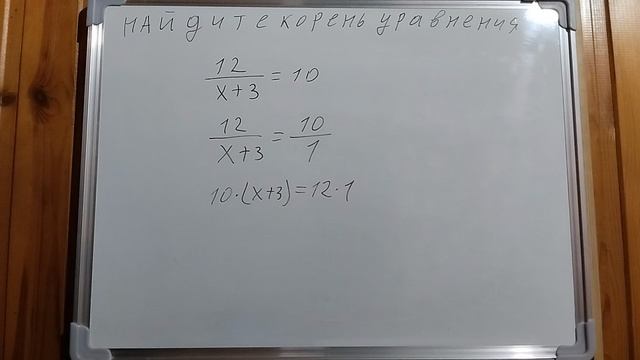 найдите корень уравнения
12/(x+3) = 10
12/(x+3) = 10/1
10·(x+3)=12·1